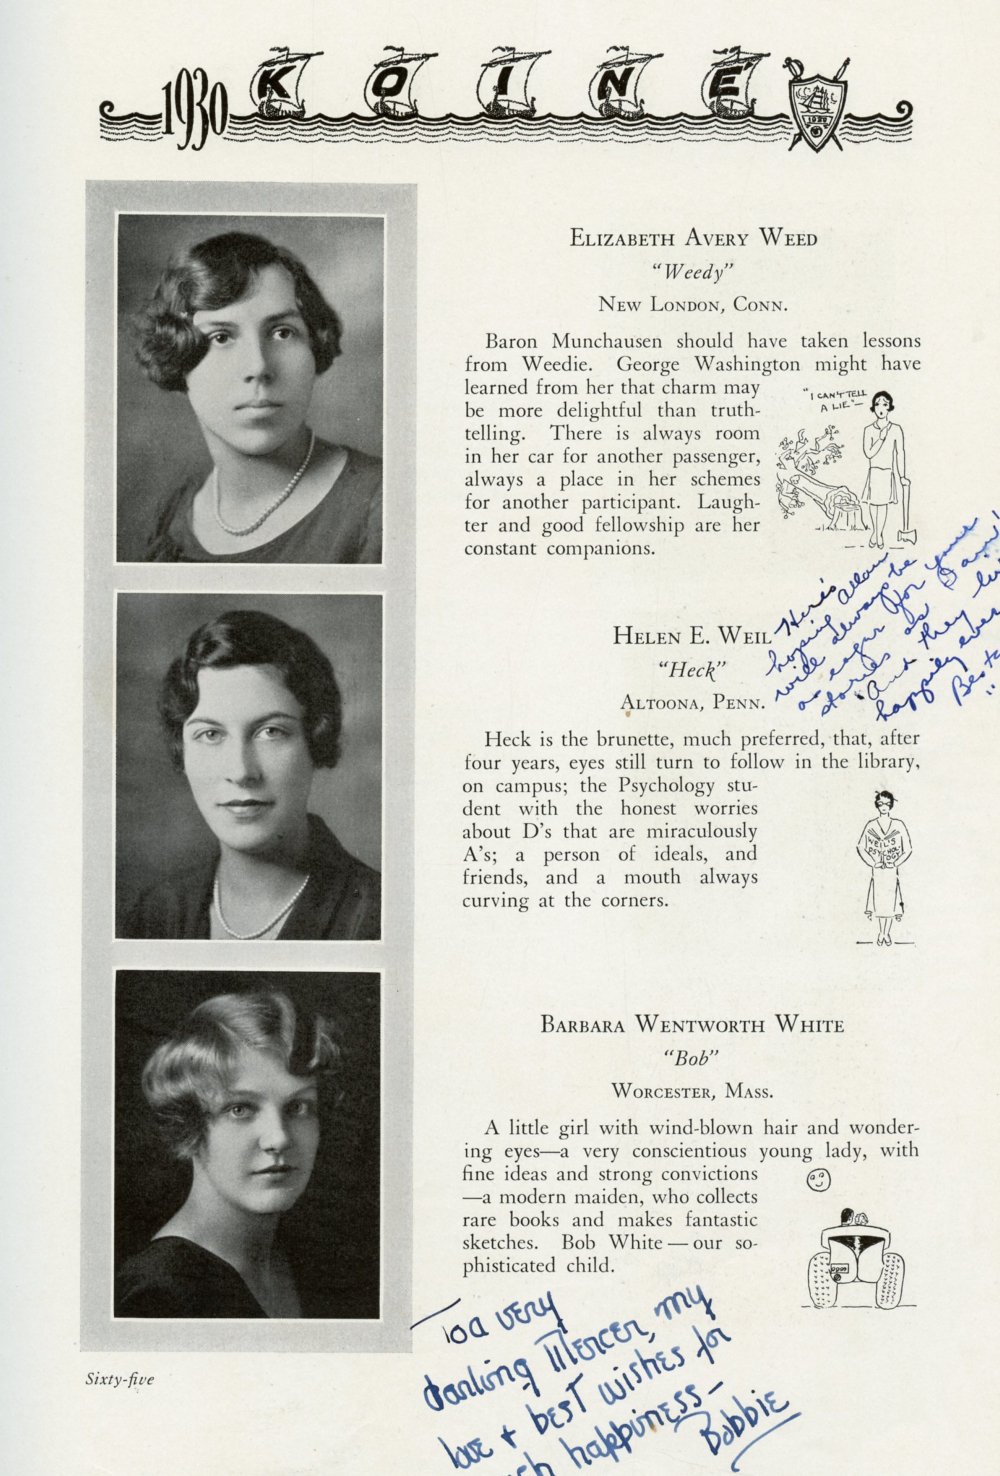 1930 KOINÉ
1930
ELIZABETH AVERY WEED
"Weedy"
NEW LONDON, CONN.
Baron Munchausen should have taken lessons
from Weedie. George Washington might have
learned from her that charm may
be more delightful than truth-
telling. There is always room
in her car for another passenger,
always a place in her schemes
for another participant. Laugh-
ter and good fellowship are her
constant companions.
"I CAN'T TELL
A LIE"—
Here's
hoping Allan
will always be
as eager for your
stories as I am!
"And they
happily ever
Best
HELEN E. WEIL
"Heck"
ALTOONA, PENN.
Heck is the brunette, much preferred, that, after
four years, eyes still turn to follow in the library,
on campus; the Psychology stu-
dent with the honest worries
about D's that are miraculously
A's; a person of ideals, and
friends, and a mouth always
curving at the corners.
WEIL'S
PSYCHOL-
OGY
BARBARA WENTWORTH WHITE
"Bob"
WORCESTER, MASS.
A little girl with wind-blown hair and wonder-
ing eyes—a very conscientious young lady, with
fine ideas and strong convictions
—a modern maiden, who collects
rare books and makes fantastic
sketches. Bob White—our so-
phisticated child.
To a very
darling Mercer, my
love + best wishes for
happiness—
Bobbie
Sixty-five